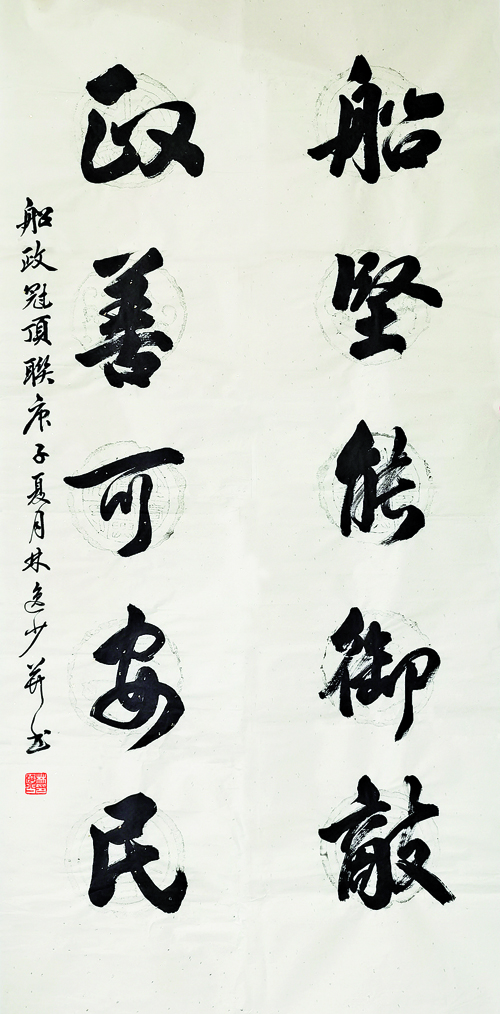 船堅能御敵
政善可安民
船政冠頂聯庚子夏月林逸少并书